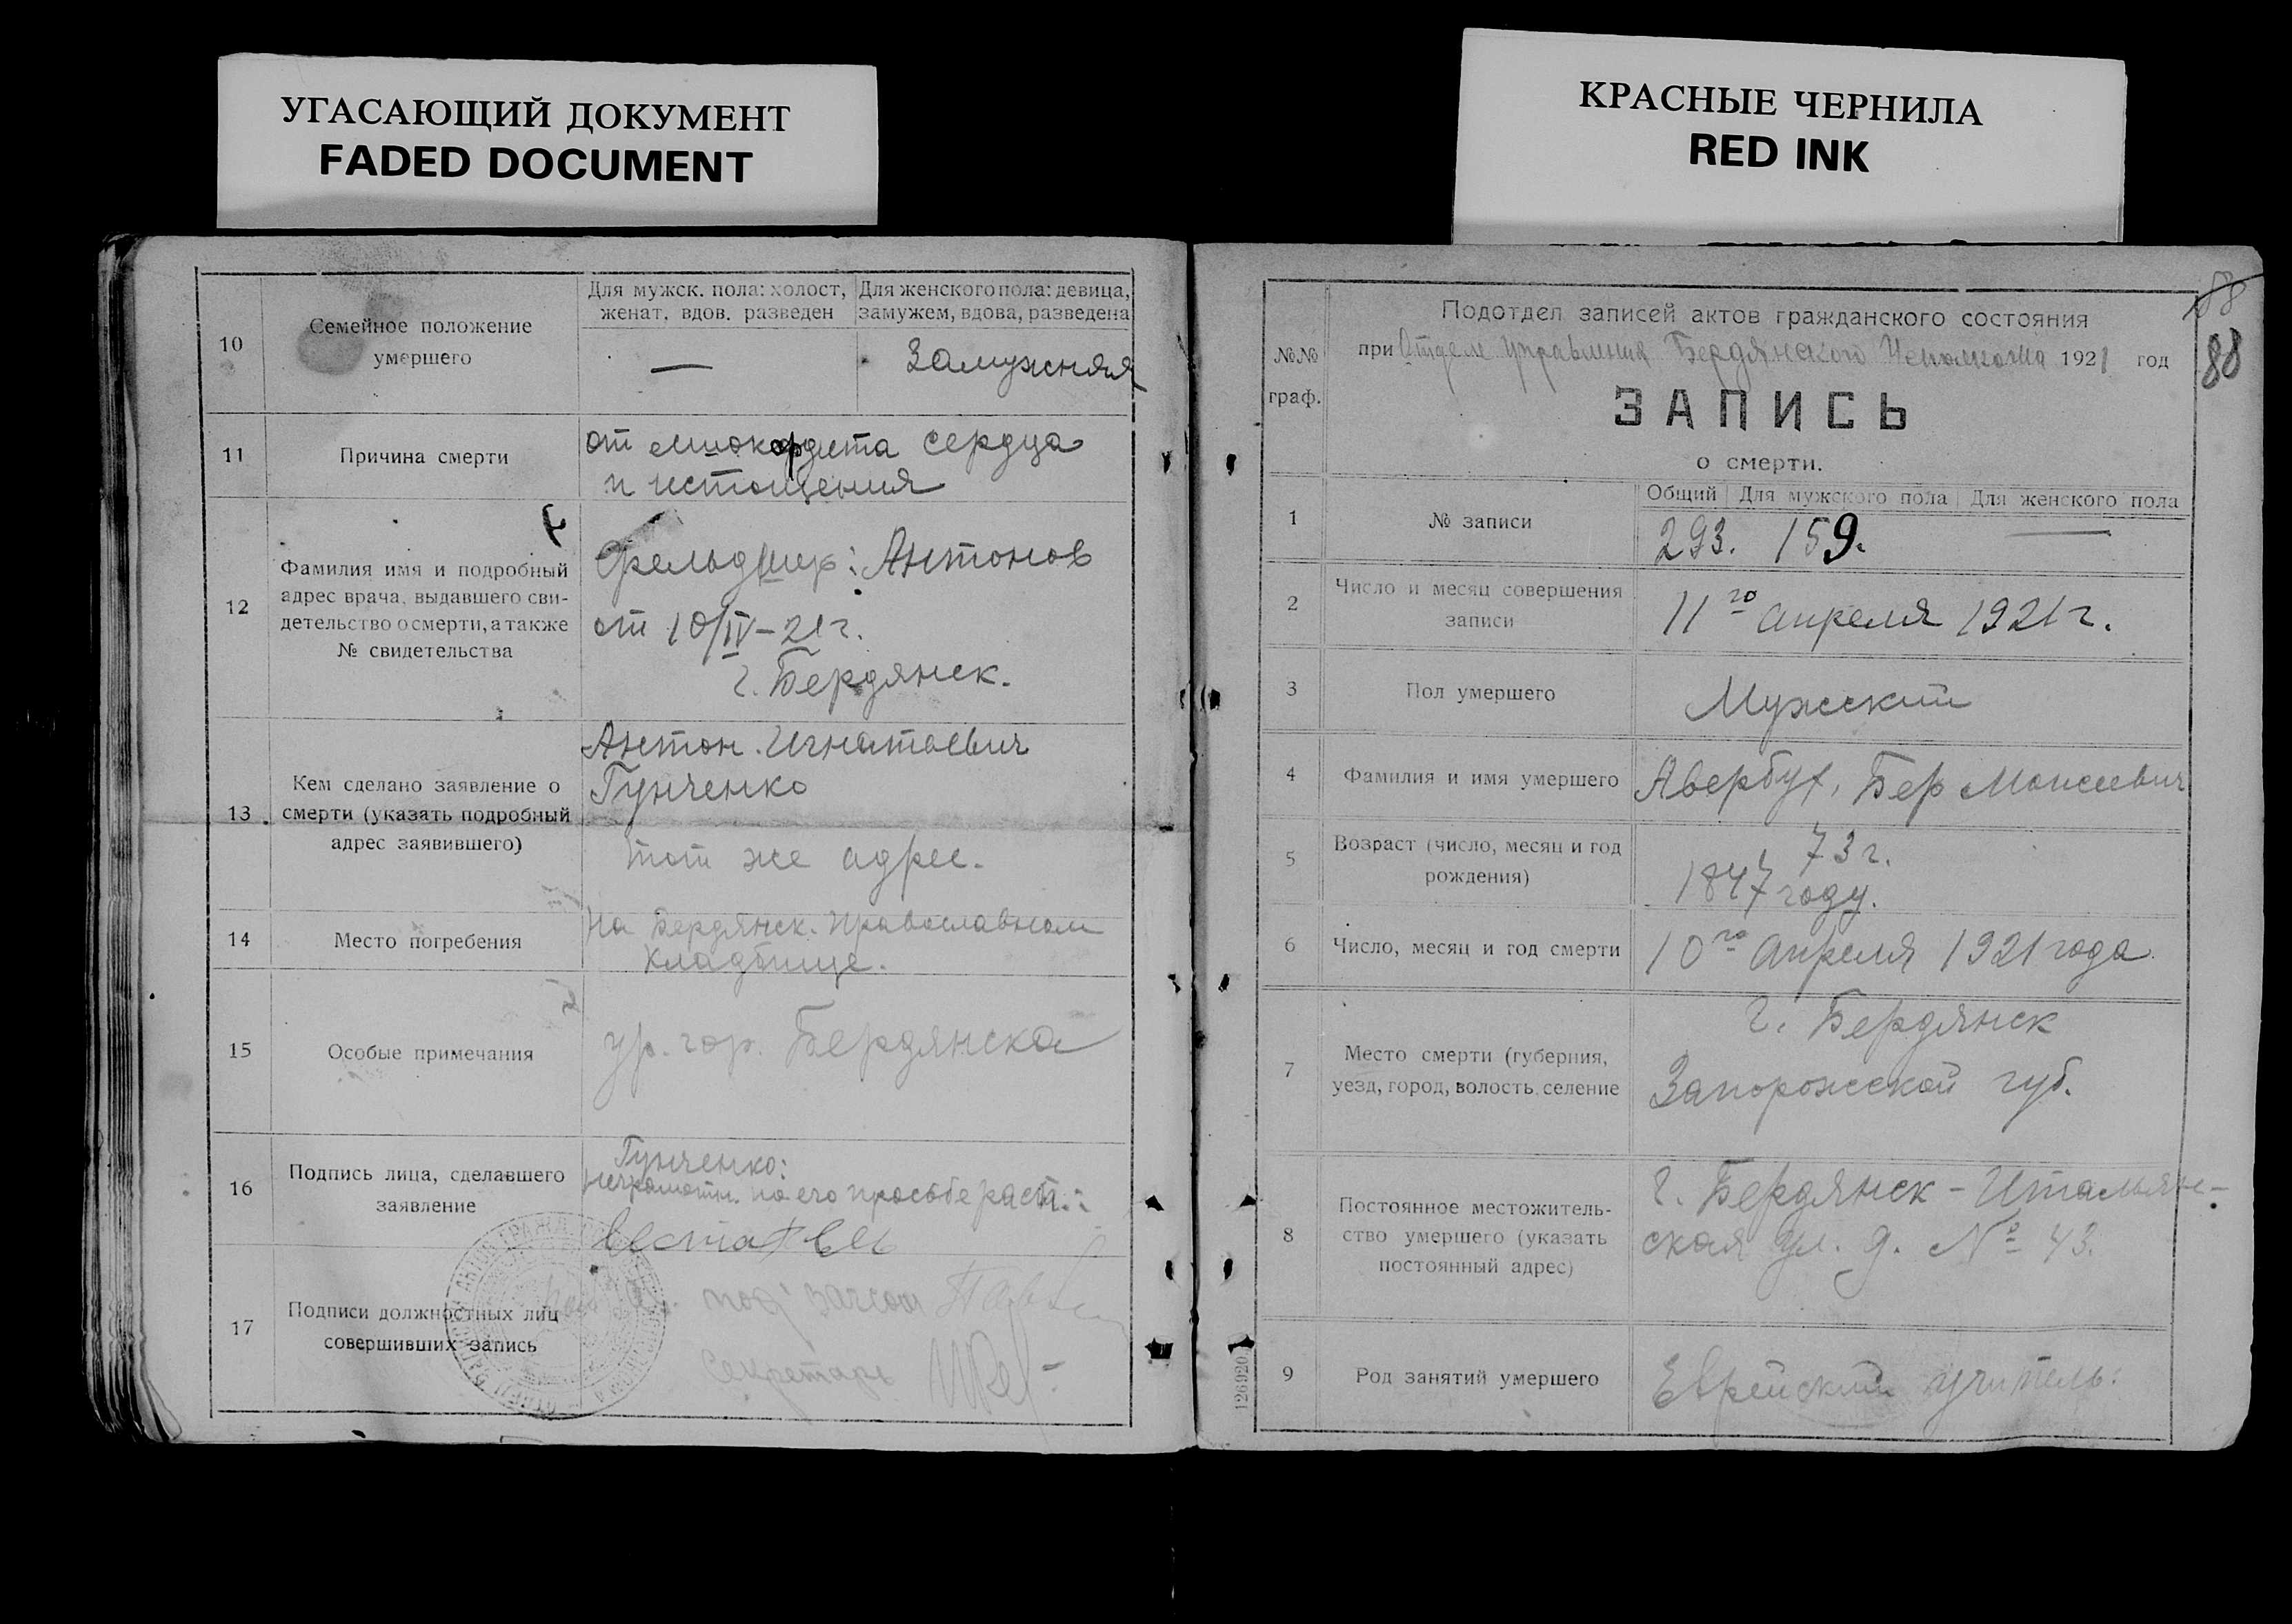 УГАСАЮЩИЙ ДОКУМЕНТ
FADED DOCUMENT
КРАСНЫЕ ЧЕРНИЛА
RED INK
10
Семейное положение
умершего
Для мужск. пола: холост,
женат, вдов, разведен
Для женского пола: девица,
замужем, вдова, разведена
—
Замужняя
11
Причина смерти
от миокардита сердца
и истощения
12
Фамилия имя и подробный
адрес врача, выдавшего сви-
детельство о смерти, а также
№ свидетельства
Фельдшер: Антонов
от 10/IV-21 г.
г. Бердянск.
13
Кем сделано заявление о
смерти (указать подробный
адрес заявившего)
Антон Игнатьевич
Гунченко
тот же адрес.
14
Место погребения
На Бердянск. Православном
кладбище.
15
Особые примечания
ур. гор. Бердянска
16
Подпись лица, сделавшего
заявление
Гунченко:
неграмотн. по его просьбе расп.:
17
Подписи должностных лиц
совершивших запись
Секретарь
88
88
№№
граф.
Подотдел записей актов гражданского состояния
при Отделе Управления Бердянского Исполкома 1921 год
ЗАПИСЬ
о смерти.
1
№ записи
Общий Для мужского пола Для женского пола
293. 159. —
2
Число и месяц совершения
записи
11го апреля 1921 г.
3
Пол умершего
Мужский
4
Фамилия и имя умершего
Авербух, Бер Моисеевич
5
Возраст (число, месяц и год
рождения)
73 г.
1847 году.
6
Число, месяц и год смерти
10го Апреля 1921 года
7
Место смерти (губерния,
уезд, город, волость, селение
г. Бердянск
Запорожской губ.
8
Постоянное местожитель-
ство умершего (указать
постоянный адрес)
г. Бердянск - Итальян-
ская ул. д. № 43.
9
Род занятий умершего
Еврейский учитель.
126920